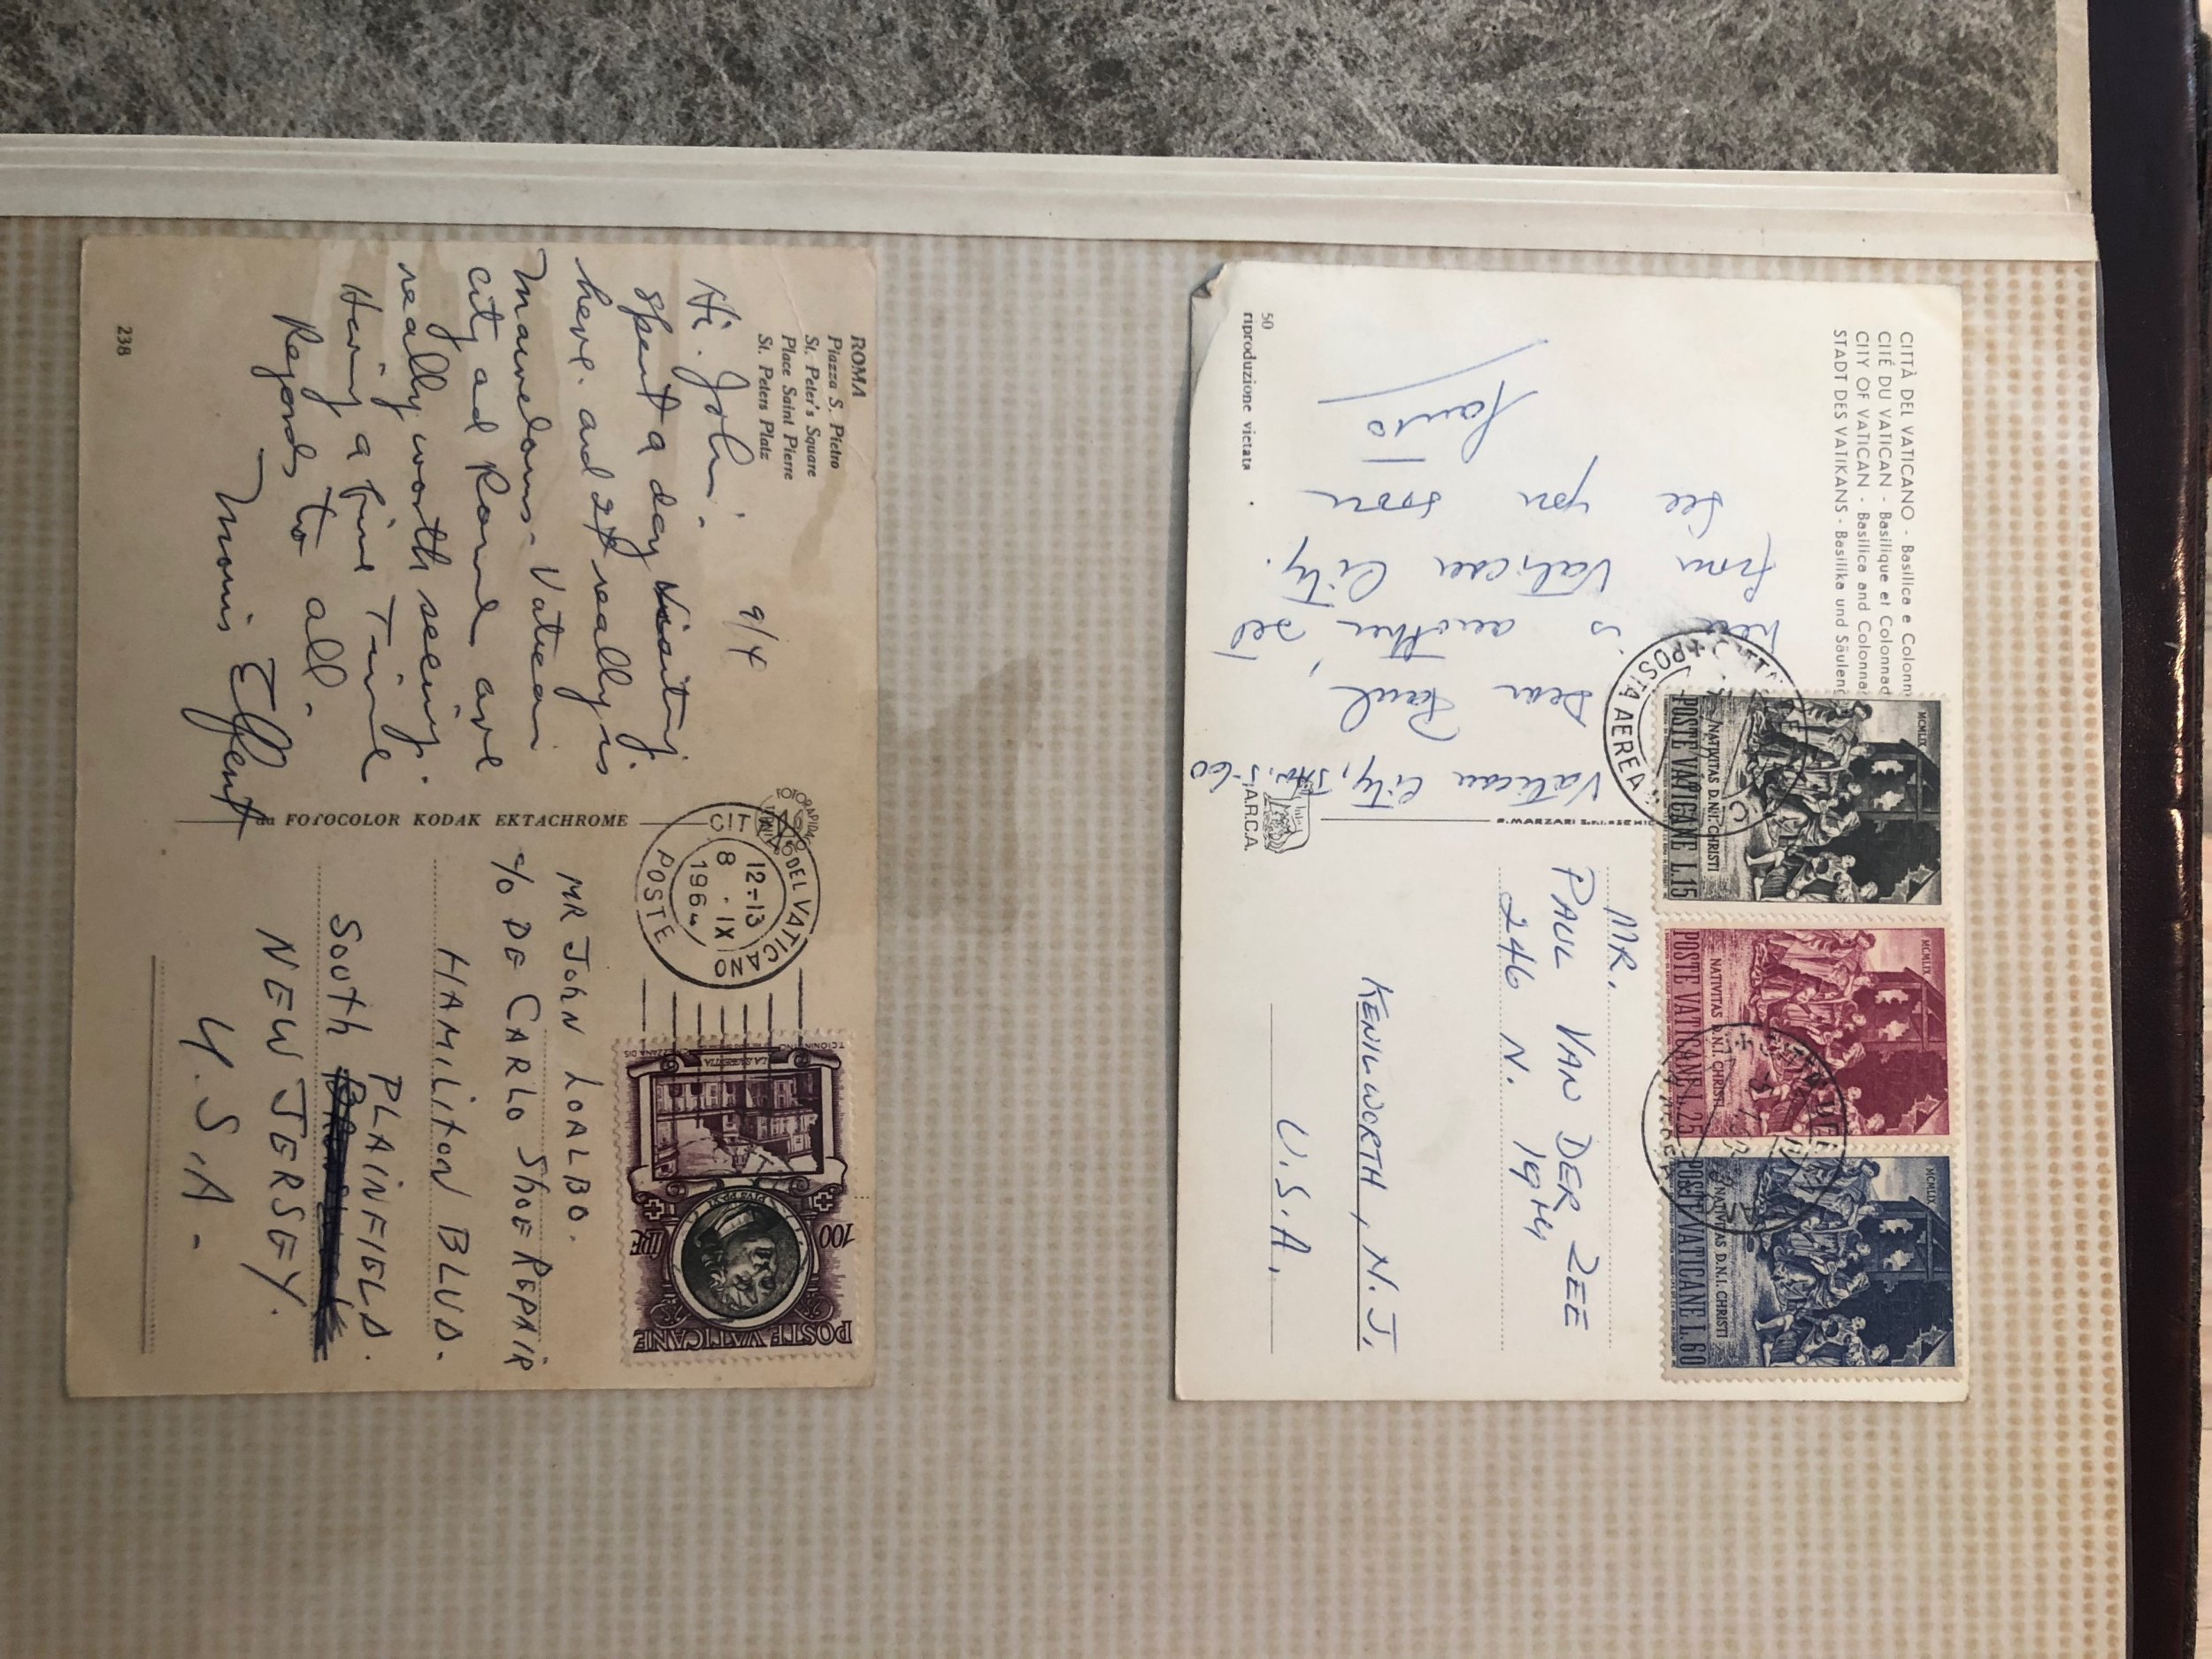 CITTÀ DEL VATICANO - Basilica e Colonn
CITÉ DU VATICAN - Basilique et Colonnad
CITY OF VATICAN - Basilica and Colonna
STADT DES VATIKANS - Basilika und Säulen
Vatican City,
5-60
Dear Paul,
here is another set
from Vatican City.
See you soon
50
riproduzione vietata
A.R.C.A.
POSTA AEREA
MCMLIX
NATIVITAS D.N.I. CHRISTI
POSTE VATICANE L.15
MCMLIX
NATIVITAS D.N.I. CHRISTI
POSTE VATICANE L.25
MCMLIX
NATIVITAS D.N.I. CHRISTI
POSTE VATICANE L.60
MR.
PAUL VAN DER ZEE
246 N. 19th
KENILWORTH, N.J.
U.S.A.
ROMA
Piazza S. Pietro
St. Peter's Square
Place Saint Pierre
St. Peters Platz
9/4
Hi. John.
Spent a day visiting
here. and it really is
marvelous - Vatican
City ad Rome are
really worth seeing.
Having a fine Time
Regards to all.
Morris
238
da FOTOCOLOR KODAK EKTACHROME
CITTA DEL VATICANO
12-13
8 . IX
1964
POSTE
POSTE VATICANE
100 LIRE
MR JOHN LOALBO.
c/o DE CARLO SHOE REPAIR
HAMILTON BLVD.
PLAINFIELD.
SOUTH
NEW JERSEY.
U.S.A-